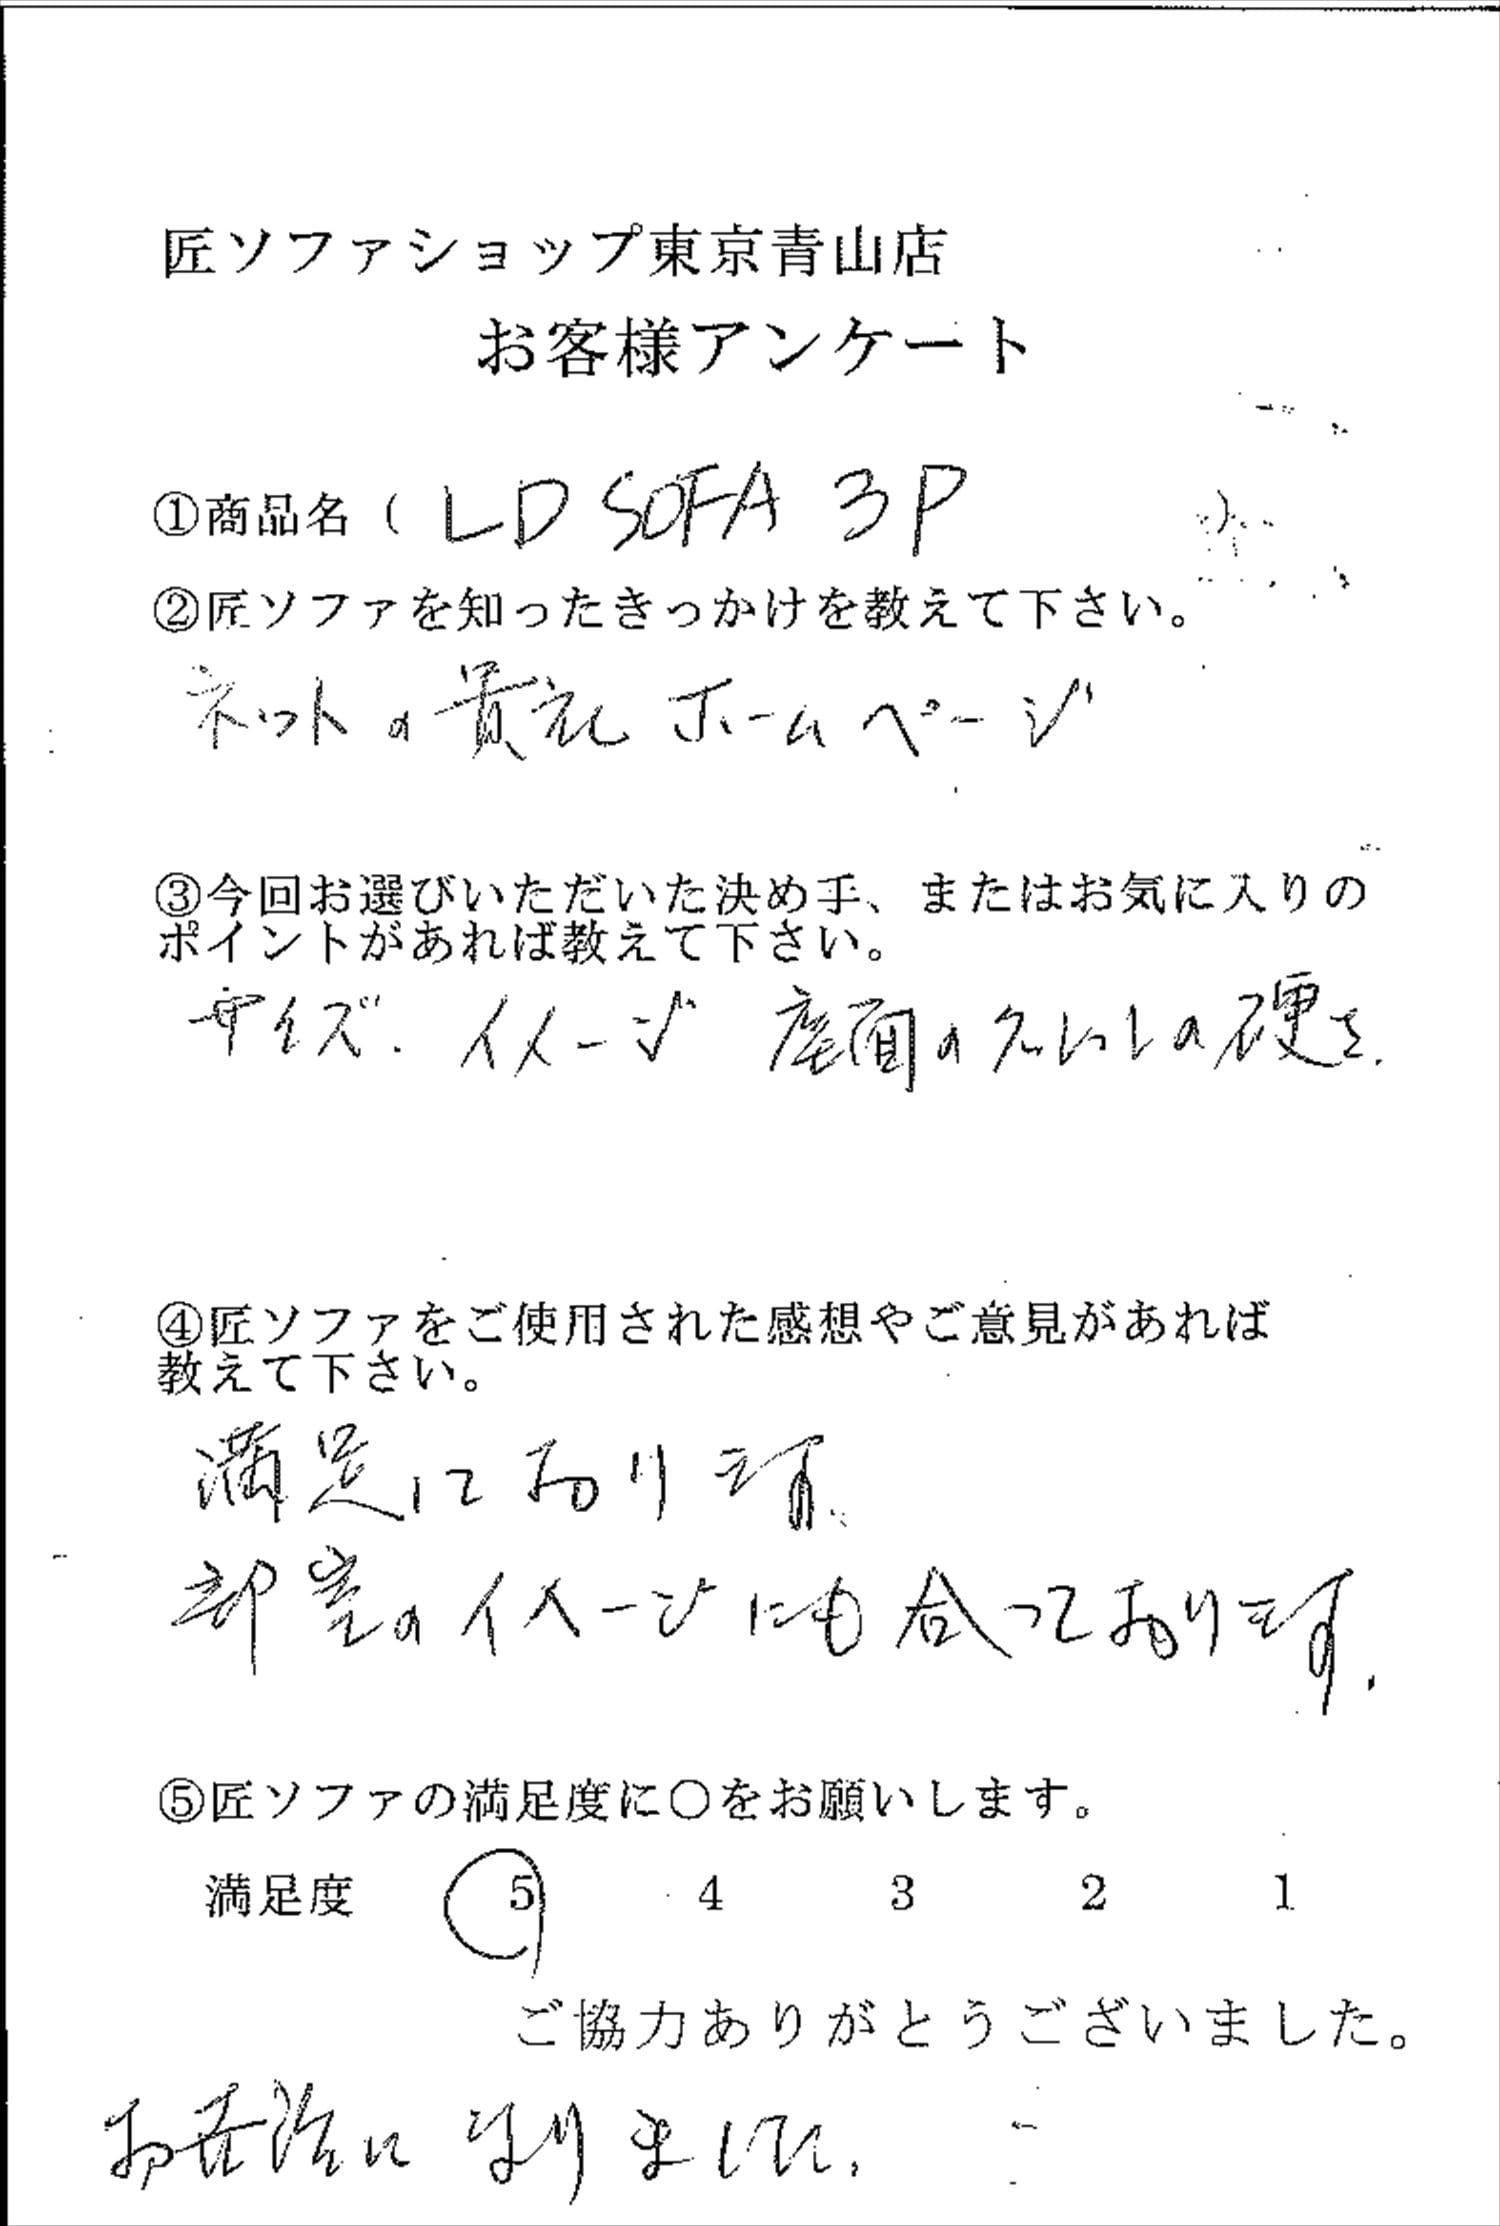 匠ソファショップ東京青山店
お客様アンケート
①商品名(LD SOFA 3P)
②匠ソファを知ったきっかけを教えて下さい。
ネットの貴社ホームページ
③今回お選びいただいた決め手、またはお気に入りの
ポイントがあれば教えて下さい。
サイズ.イメージ 座面のクッションの硬さ.
④匠ソファをご使用された感想やご意見があれば
教えて下さい。
満足しております.
部屋のイメージにも合っております.
⑤匠ソファの満足度に○をお願いします。
満足度 5 4 3 2 1
ご協力ありがとうございました。
お世話になりました.